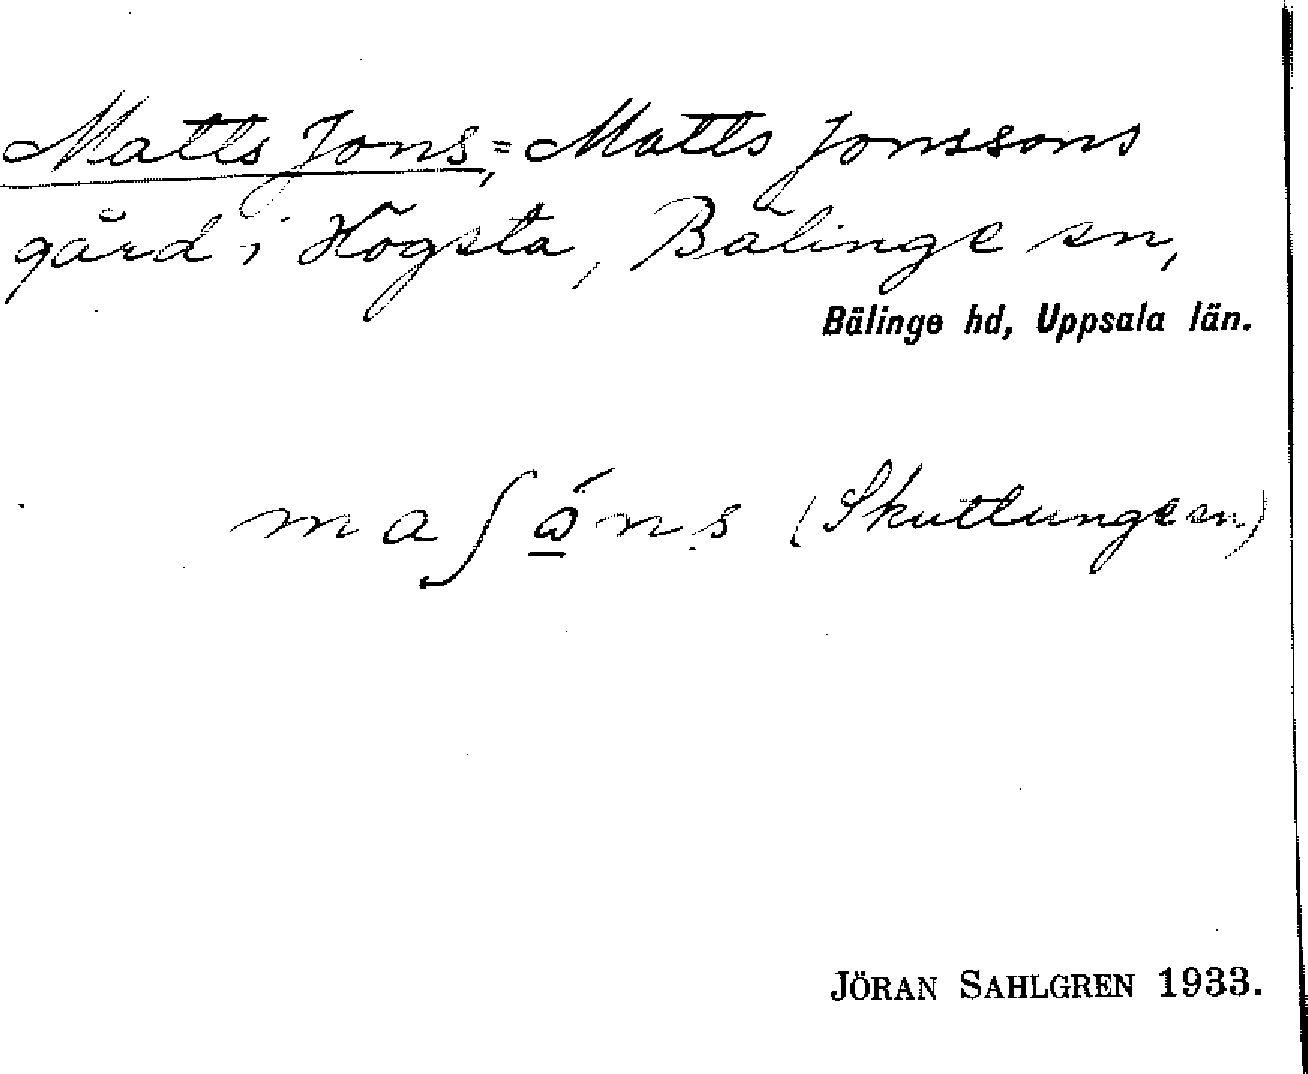 Matts Jons, = Matts Jonssons
gård i Högsta, Bälinge sn,
Bälinge hd, Uppsala län.
maʃώ̲n.s (Skuttunge sn)
JÖRAN SAHLGREN 1933.